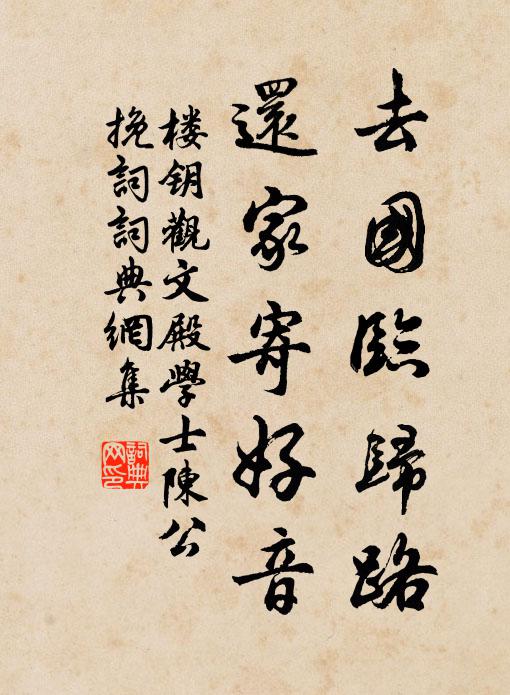 去國臨歸路
還家寄好音
楼钥觀文殿學士陳公
挽詞詞典網集
詞典
网印